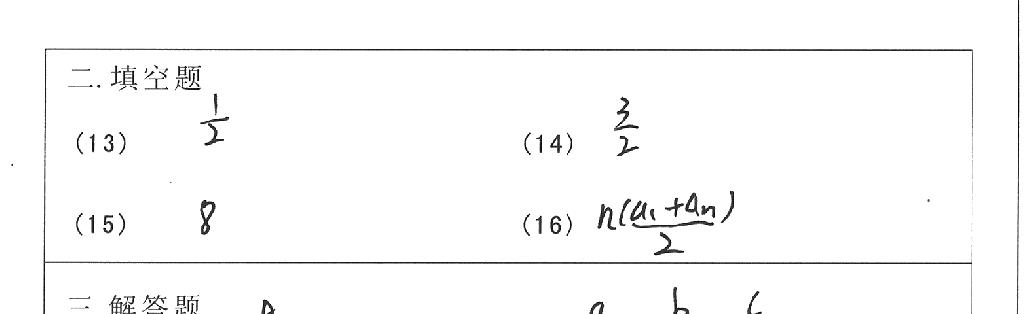 二.填空题
(13) 1/2 (14) 3/2
(15) 8 (16) n(a₁+aₙ)/2
三.解答题